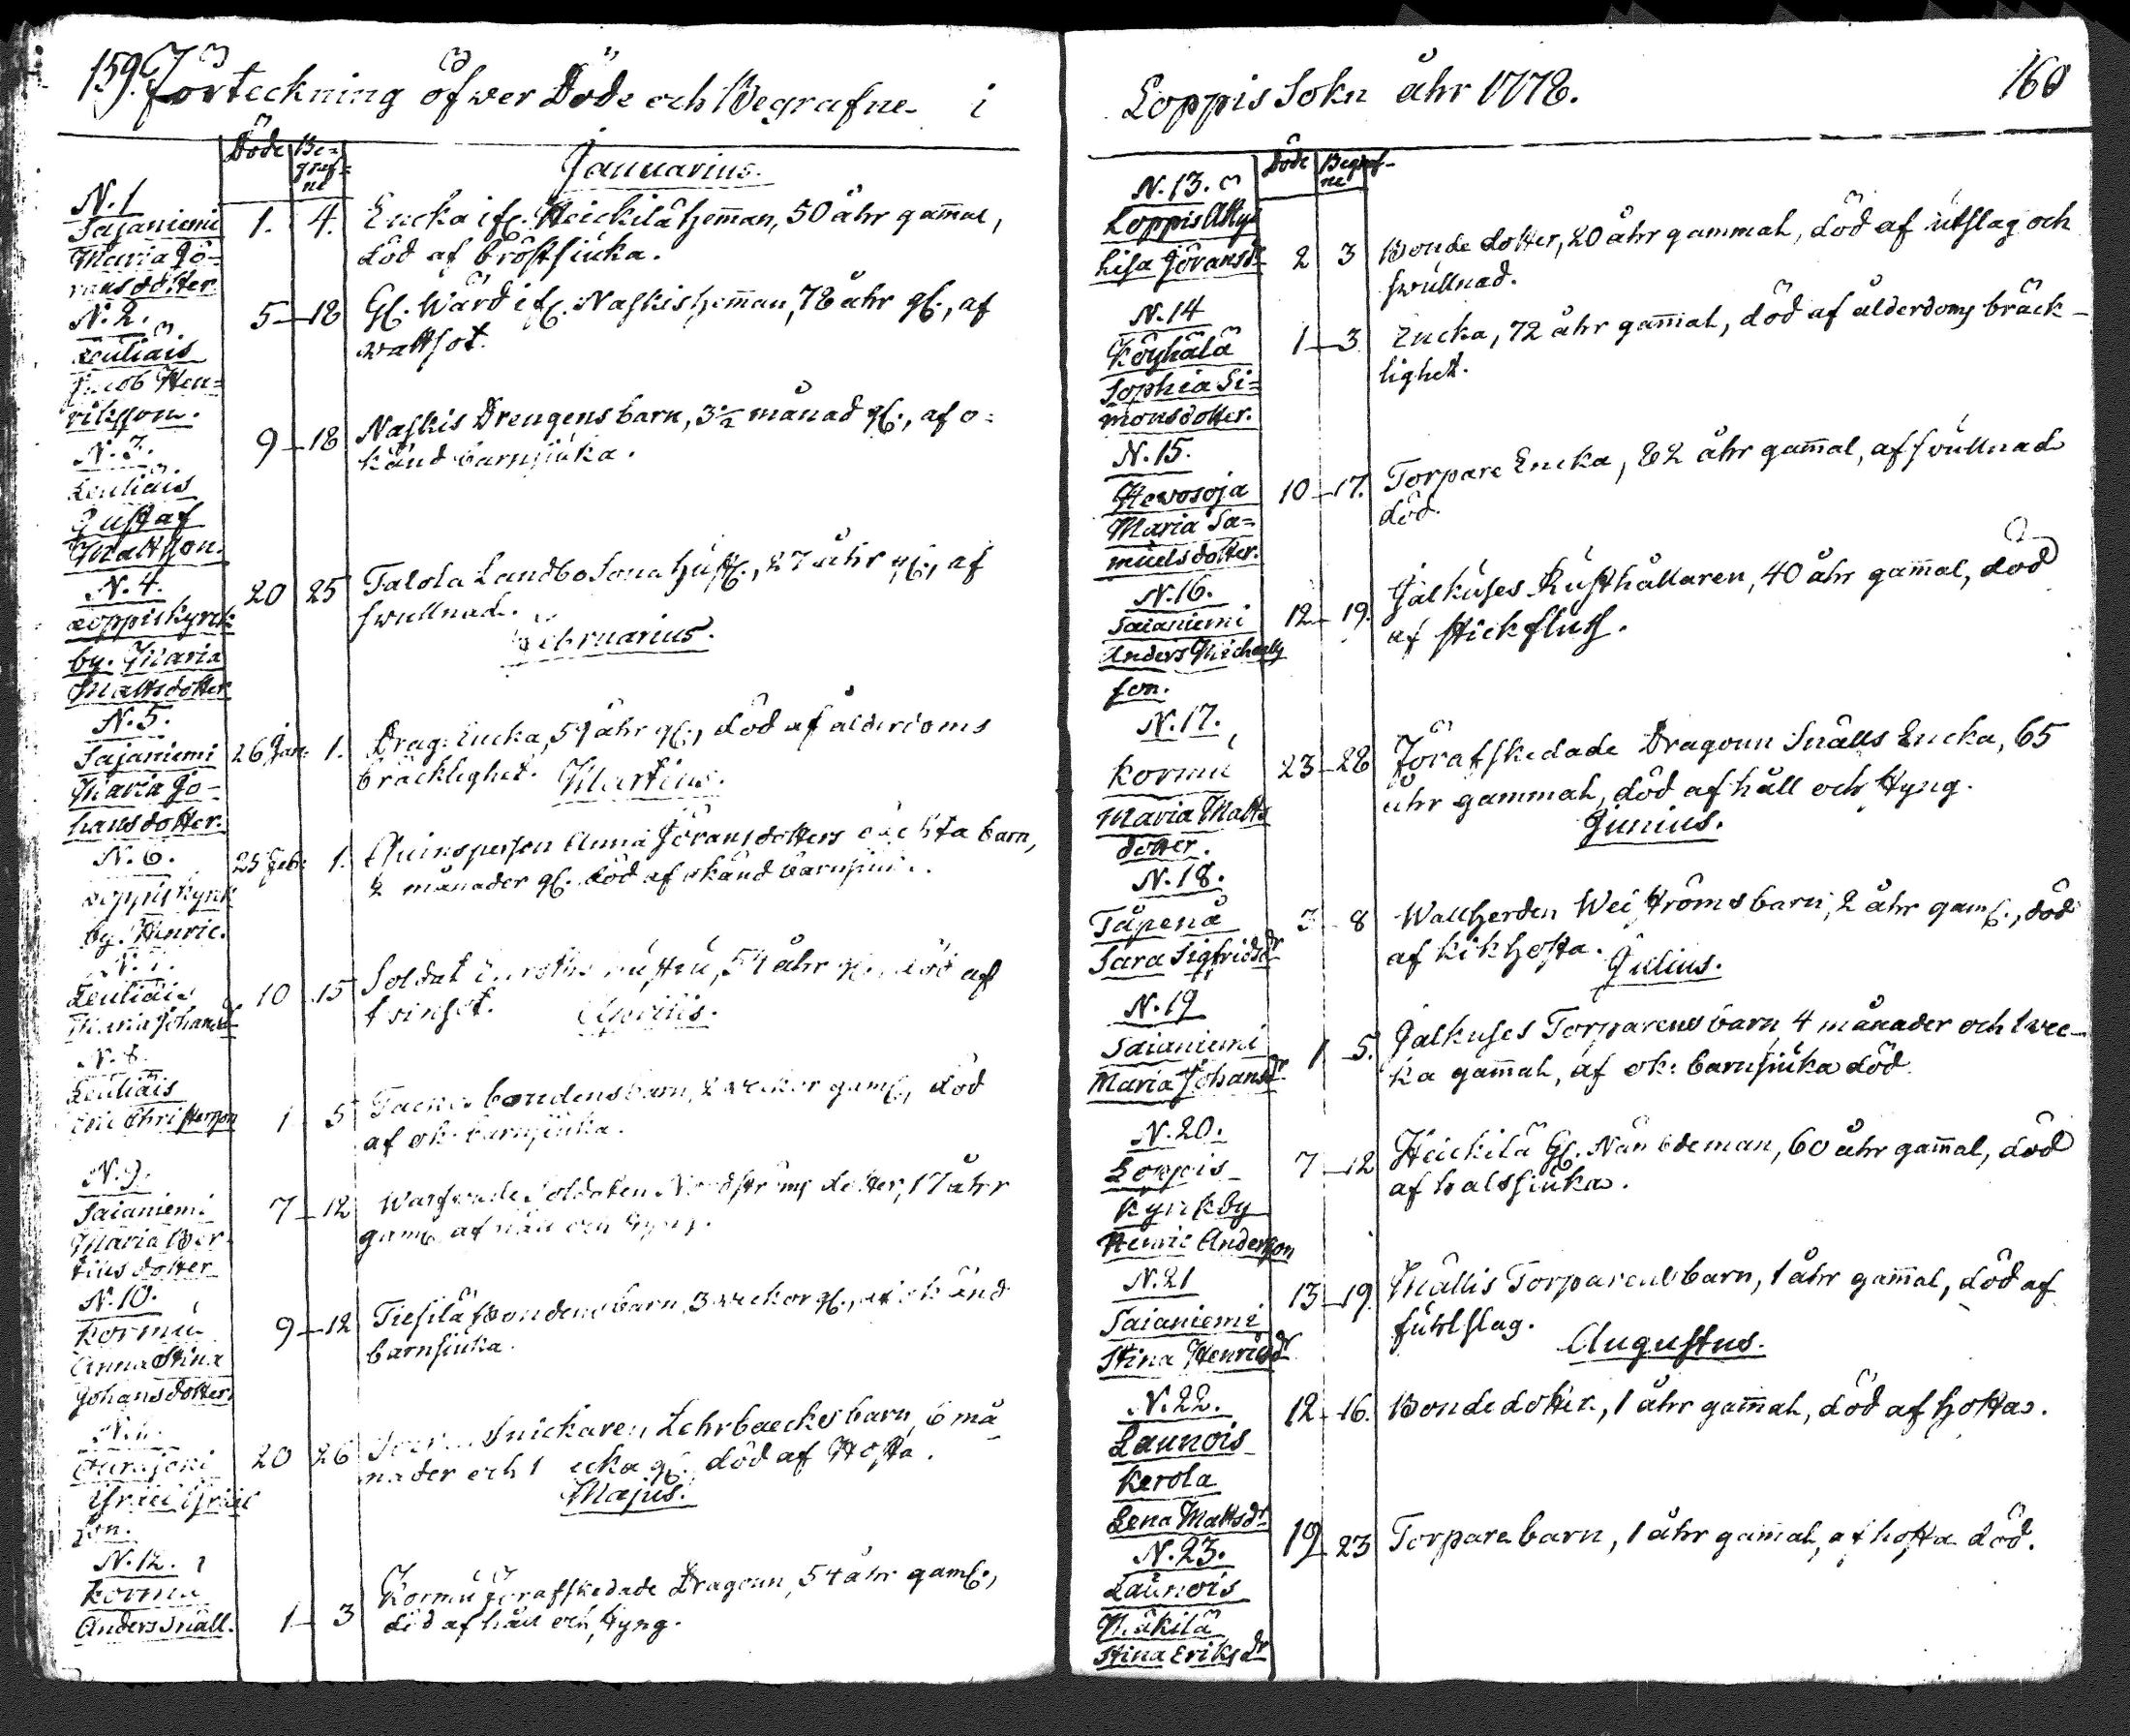 159. Förteckning öfwer Döde och Begrafne i
Döde Be=
graf=
ne
Januarius.
N. 1
Sajaniemi
Maria Jö-
ransdotter
1. 4. Encka ifr. Heickilä hem̄an, 50 åhr gam̄al,
död af bröstsiuka.
N. 2.
Leuliäis
Jacob Hen=
riksson.
5 18 Gl. Wärd ifr. Naskis hem̄an, 78 åhr gl., af
wattsot.
N. 3.
Leuliäis
Gustaf
Mattsson.
9 18 Naskis Drengens barn, 3½ månad gl., af o=
känd barnsiuka.
N. 4.
Loppis kyrck
by. Maria
Mattsdotter
20 25 Talola Landbo Sona hust., 27 åhr gl., af
swullnad.
Februarius.
N. 5.
Sajaniemi
Maria Jo-
hansdotter.
26 Jan: 1. Drag: Encka, 59 åhr gl., död af ålderdoms
bräcklighet.
Martius.
N. 6.
Loppis kyrk
by. Henric.
25 Feb: 1. Quinsperson Anna Göransdotters oächta barn,
2 månader gl. död af okänd barnsiu..
N. 7.
Leuliäis
Maria Johansd
10 15 Soldat hustru, 54 åhr gl., död af
twinsot.
Aprilis.
N. 8.
Leuliäis
Eric Christersson
1 5 bondens barn, 2 weckor gaml., död
af ok. barnsiuka.
N. 9.
Saianiemi
Maria Ber-
tilsdotter
7 12 Warfwade Soldaten Nordströms dotter, 17 åhr
gaml. af håll och styng.
N. 10.
Kormú
Anna Stina
Johansdotter.
9 12 Tiesilä Bondens barn, 3 weckor gl., af okänd
barnsiuka.
N. 11.
son.
20 26 Snickaren Lehrbaecks barn, 6 må
nader och 1 gl. död af Hosta.
Majus.
N. 12.
Kormu
Anders Snäll.
1 3 Kormú förafskedade Dragoun, 54 åhr gaml.,
död af håll och styng.
Loppis Sokn åhr 1778. 160
Döde Begraf-
ne
N. 13.
Loppis Atty
Lisa Göransdr
2 3 Bonde dotter, 20 åhr gammal, död af útslag och
swúllnad.
N. 14
Köyhälä
Sophia Si=
monsdotter.
1 3 Encka, 72 åhr gam̄al, död af ålderdoms bräck-
lighet.
N. 15.
Hewosoja
Maria Sa=
múelsdotter.
10 17. Torpare Encka, 82 åhr gam̄al, af swúllnad
död.
N. 16.
Saianiemi
Anders Michaels
son.
12 19. Jälkúses Rústhållaren, 40 åhr gam̄al, död
af stickfluss.
N. 17.
Kormú
Maria Matts
dotter.
23 28 Förafskedade Dragoun Snälls Encka, 65
åhr gammal, död af håll och styng.
Junius.
N. 18.
Täpenä
Sara Sigfridsdr
3 8 Wallherden Weiströms barn, 2 åhr gaml., död
af kikhosta.
Julius.
N. 19
Saianiemi
Maria Johansdr
1 5. Jälkuses Torparens barn, 4 månader och 1 wec-
ka gam̄al, af ok: barnsiúka död.
N. 20.
Loppis
Kyrkby
Henric Andersson
7 12 Heickilä Gl. Nämbdeman, 60 åhr gam̄al, död
af halssiúka.
N. 21
Saianiemi
Stina Henricsdr
13 19. Mällis Torparens barn, 1 åhr gam̄al, död af
fuhlslag.
Augustus.
N. 22.
Launois
Kerola
Lena Mattsdr
12 16. Bondedotter, 1 åhr gam̄al, död af hosta.
N. 23.
Laúnois
Mäkilä
Stina Eriksdr
19 23 Torpare barn, 1 åhr gam̄al, af hosta död.